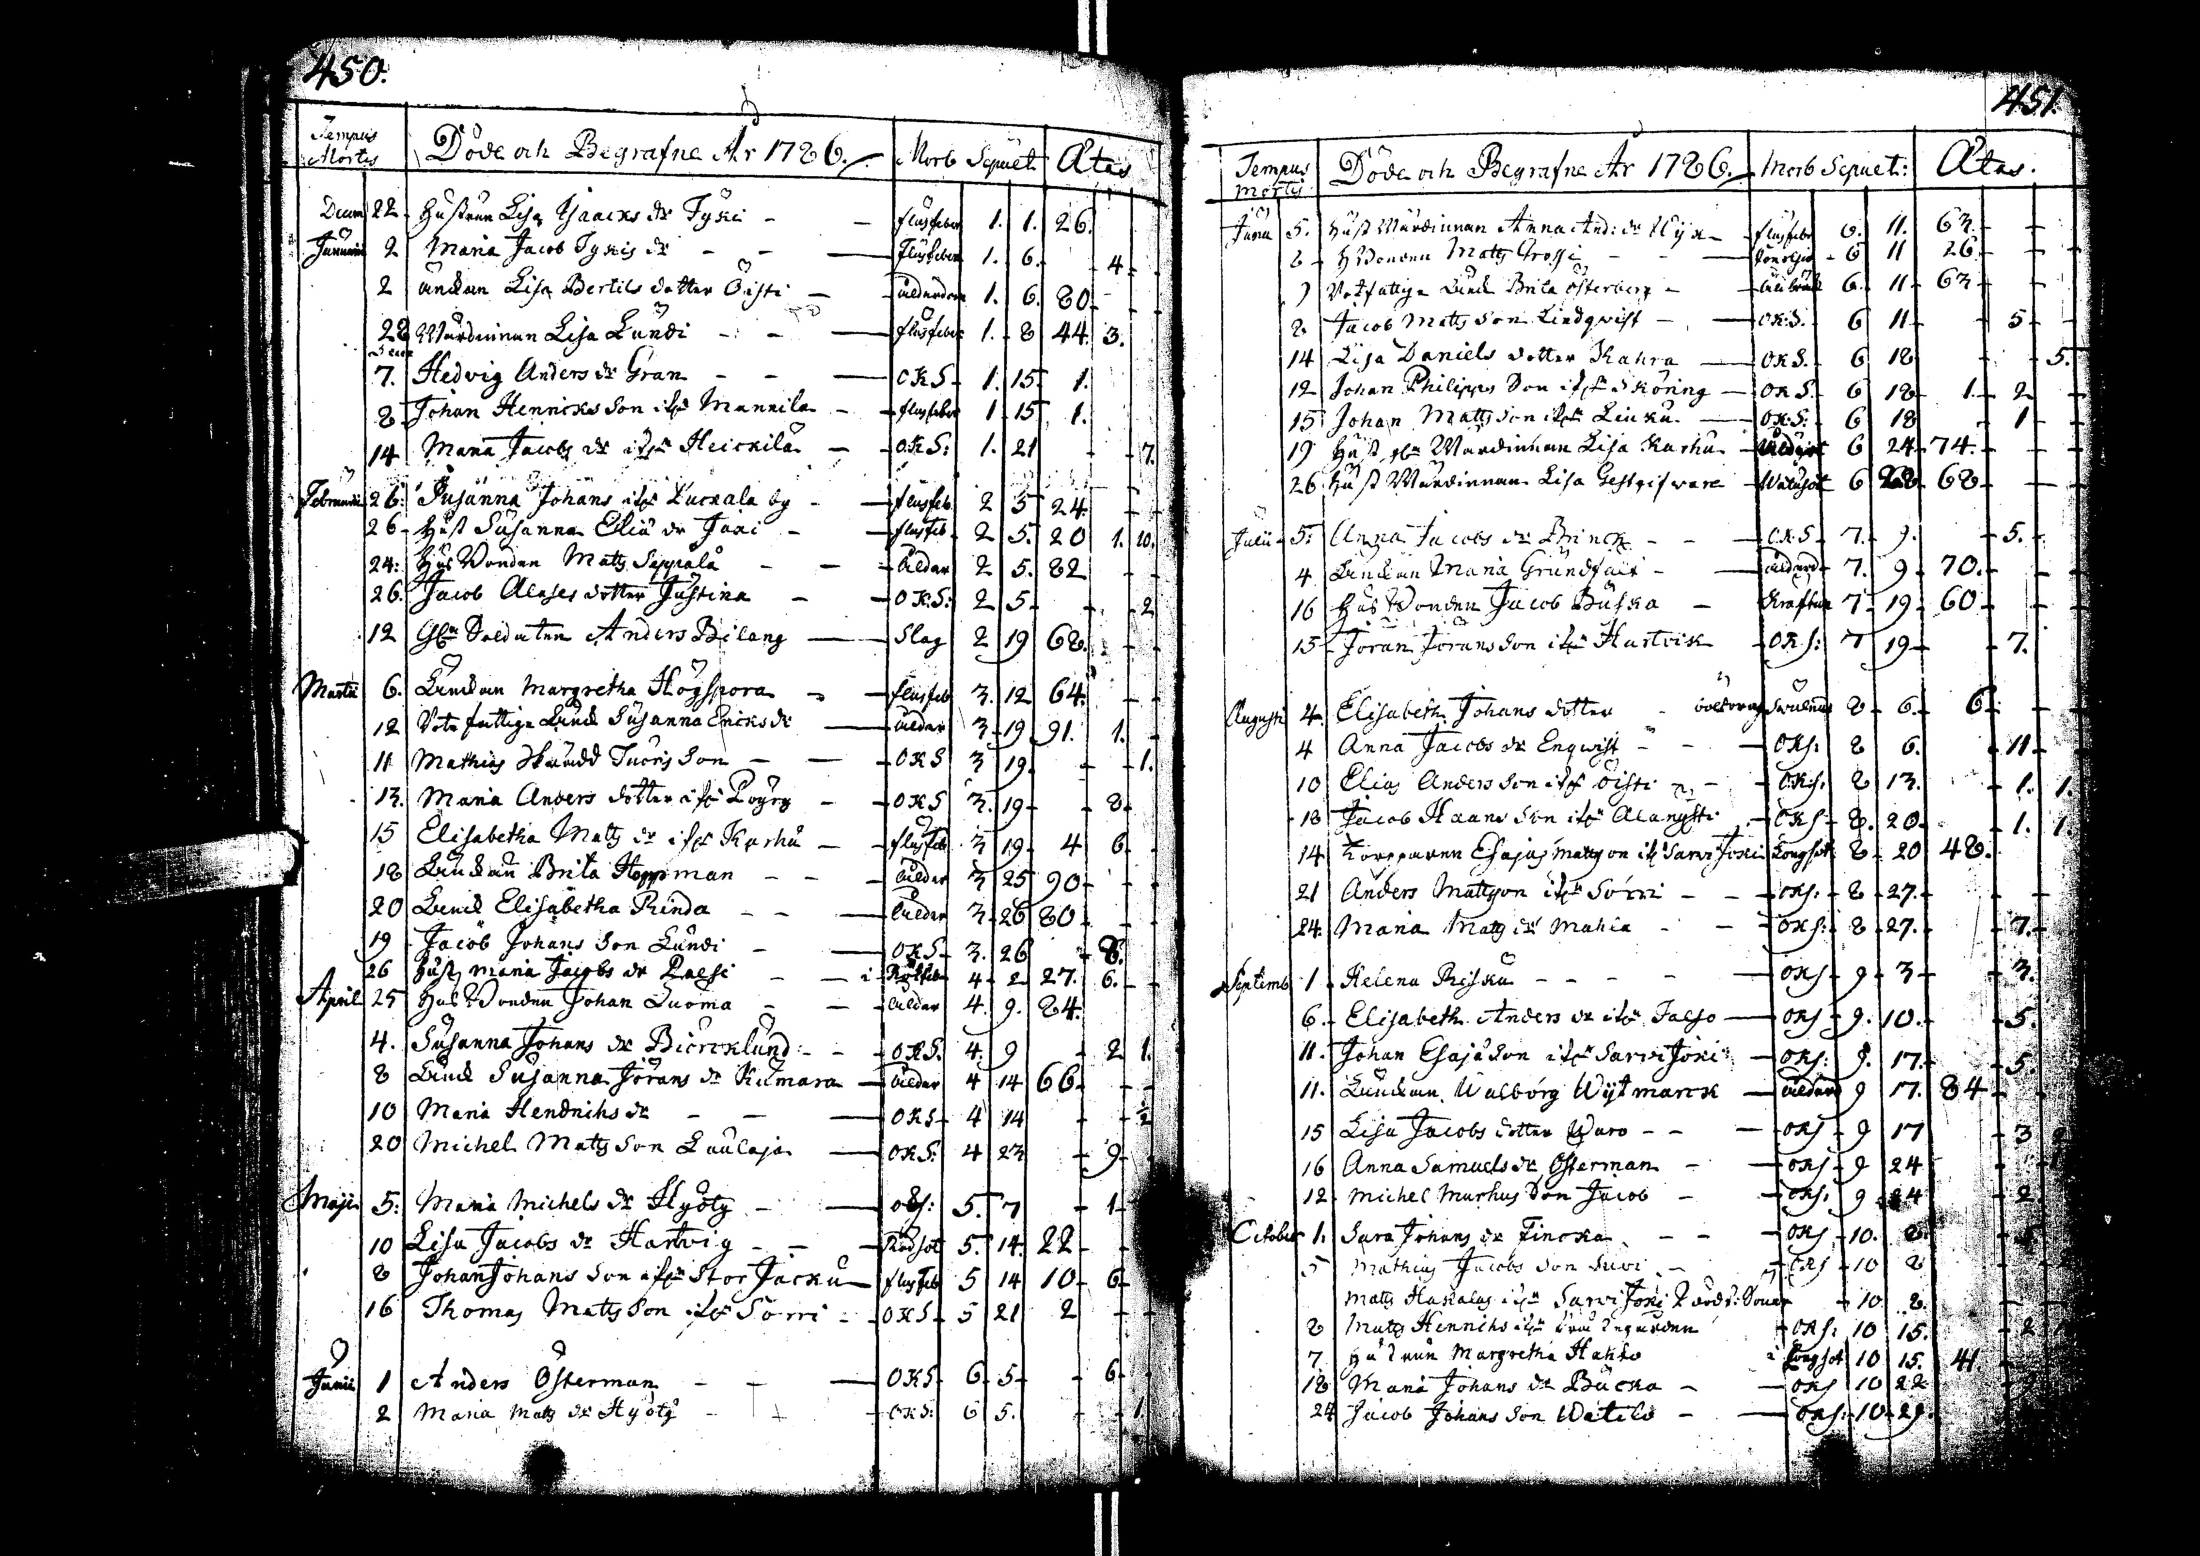 450.
Tempus Mortis Döde och Begrafne År 1786. Morb Sepuet Ætas
Decem 22 Hustrun Lisa Isaacks dr Tyski - - flusfeber 1. 1. 26.
Januarii 2 Maria Jacob Tyskis dr - - - flusfeber 1. 6. - 4 -
2 änckan Lisa Bertils dotter Öisti - ålderdom 1. 6. 80 -
28 Wärdinnan Lisa Lundi - - - flusfeber 1. 8 44. 3.
7. Hedvig Anders dr Gran - - - OKS - 1. 15. 1.
8 Johan Henricks Son ifrn Mannila - - flusfeber 1 15 1.
14 Maria Jacobs dr ifrn Heickilä - - O.K.S: 1. 21 - - 7.
Februarii 26: Susanna Johans ifrn Luckala by - - flusfeb 2 5 24.
26 - Hust Susanna Eliä dr Joki - - flusfeb - 2 5. 20 1. 10.
24: Hus Bonden Matts Seppälä - - - ålder 2 5. 82
26. Jacob Alases dotter Justina - - OKS: 2 5 - - - 2
12 Gbn Soldaten Anders Bilang - Slag 2 19 68. - -
Martii 6. Änckan Margretha Högspora - - flusfeb 3. 12 64. - -
12 Votefattige Änck Susanna Ericks dr - ålder 3 - 19 91. 1. -
11 Mathias Skrädd Turis Son - - - OKS 3 19. - - 1.
13. Maria Anders dotter ifrn Pöyry - - OKS 3. 19 - - 8 -
15 Elisabetha Matts dr ifrn Karhu - - flusfeb 3 19 - 4 6 -
18 Änckan Brita Hoppman - - - ålder 3 25 90 - -
20 Änck Elisabetha Rinda - - - ålder 3 - 26 80 - -
19 Jacob Johans Son Lundi - - OKS - 3. 26 - 8.
26 Hust Maria Jacobs dr Palsi - - - Rötfeber 4 - 2 27. 6. -
April 25 Hus Bonden Johan Luoma - - ålder 4. 9. 84.
4. Susanna Johans dr Biörcklund: - - OKS. 4. 9 - 2 1.
8 Änck Susanna Jörans dr Kumara - ålder 4 14 66 - - -
10 Maria Hendrichs dr - - - OKS - 4 14 - - ½
20 Michel Matts Son Laulaja - OKS: 4 23 - 9 -
Maji 5: Maria Michels dr Hyöty - - oks: 5. 7 - 1 -
10 Lisa Jacobs dr Hartvig - - - Rödsot 5. 14. 22 - -
8 Johan Johans Son ifrn Stor Jacku - flusfeb 5 14 10 - 6 -
16 Thomas Matts Son ifrn Sorri - - OKS - 5 21 2 - -
Junii 1 Anders Österman - - - OKS - 6 - 5 - - 6 -
2 Maria Matts dr Hyöty - - OKS: 6 5. - - 1.
451.
Tempus mortis Döde och Begrafne År 1786. Morb Sepuet: Ætas.
Junii 5. Hust Wärdinnan Anna And: dr - flusfebr 6. 11. 63. - -
8 - H Bonden Matts Grossi - - - 6 11 26 - -
9 Votefattige Änck Brita Österberg - 6. 11 - 63 - -
8 Jacob Matts Son Lindqvist - - OK:S. - 6 11 - - 5 -
14 Lisa Daniels dotter Kahra - OKS. - 6 18 - - 5.
12 Johan Philippus Son ifrn Skönng - OKS. - 6 18 - 1. - 2 -
15 Johan Matts Son ifrn Linku - O:K:S: - 6 18 - 1 -
19 Hust gbn Wärdinnan Lisa Karhu - 6 24 - 74 - - -
26 Hust Wärdinnan Lisa Gestgifware - 6 28 - 68 - -
Julii - 5: Anna Jacobs dr Brinck - - - OKS - 7. - 9. - 5. -
4 Änckan Maria Grundfält - ålderd - 7. 9 - 70. - -
16 Hus Bonden Jacob Buska - Kräftan 7 - 19 - 60 - -
15 Jöran Jörans Son ifrn Hartvik - OKS: 7 19 - - 7.
Augusti 4. Elisabeth Johans dotter - 8 - 6. - 6 -
4 Anna Jacobs dr Enqwist - - - OKS: 8 6. - 11 -
10 Elias Anders Son ifrn Öisti - - O:K:S: 8 13. - 1. 1.
18 Jacob Haans Son ifrn - OKS - 8. 20 - - 1. 1.
14 Esajas Mattson ifrn Sarvi Joki Lungsot 8 - 20 48.
21 Anders Mattson ifrn Sorri - - OKS: - 8 - 27. - - -
24. Maria Matts dr Mahia - - OKS: - 8 - 27. - - 7. -
Septemb 1 - Helena Risku - - - - OKS - 9 - 3 - - 3.
6. - Elisabeth Anders dr ifrn Salso - OKS - 9. 10. - - 5.
11. Johan Esaja Son ifrn Sarvi Joki - OKS: 9. 17. - - 5.
11. Änckan Walborg Wytmarck - ålderd 9 17. 84 - -
15 Lisa Jacobs dotter Waro - - - OKS - 9 17 - 3
16 Anna Samuels dr Österman - - OKS - 9 24
12 - Michel Marhus Son Jacob - - OKS. 9 24 - 2
October 1. Sara Johans dr Fincka - - - OKS - 10. 8
5 Mathias Jacobs Son Suvi - - OKS - 10 8
Matts ifrn Sarvi Joki - 10 8.
8 Matts Henrichs ifrn - OKS: 10 15. - 2
7 Hustrun Margretha Hakko Lungsot 10 15. 41.
18 Maria Johans dr Bucka - - OKS 10 22
24 Jacob Johans Son Watilo - - OKS: 10 - 29.